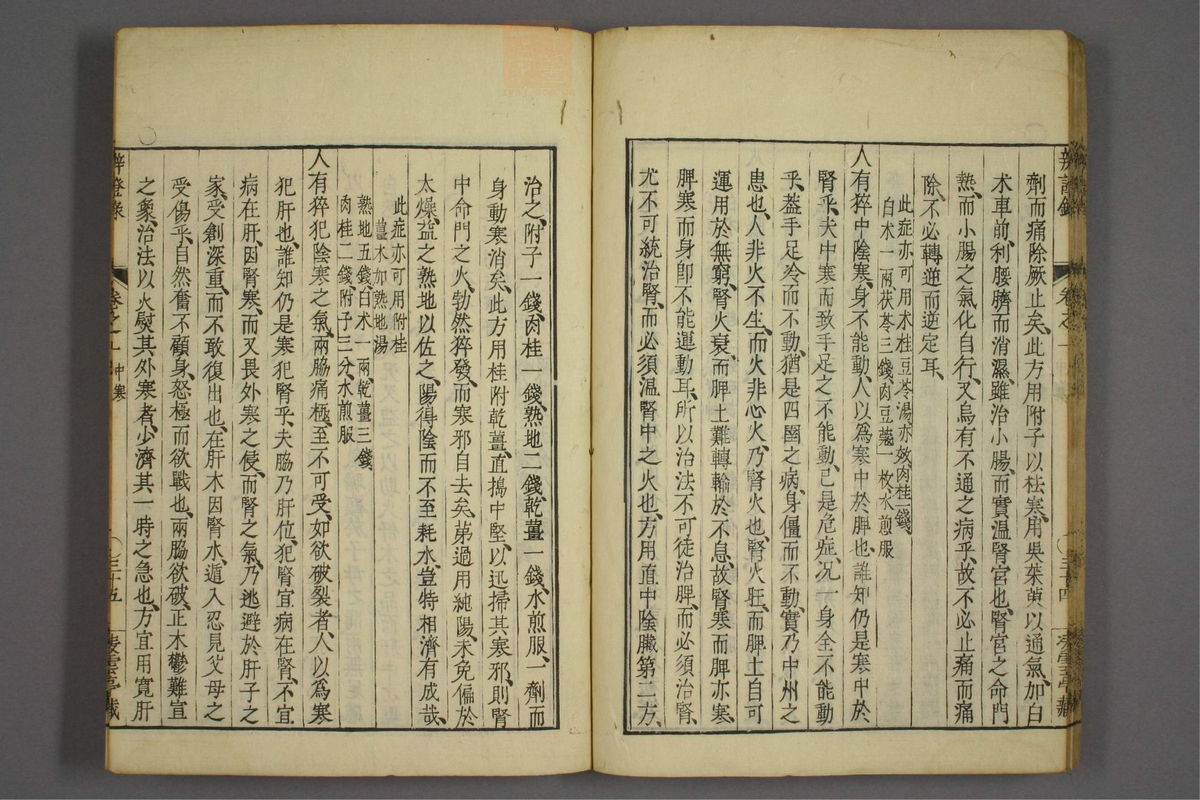 辨證錄
卷之一
三十四
劑而痛除厥止矣、此方用附子以袪寒、用吳茱萸以通氣、加白
术車前、利腰臍而消濕、雖治小腸、而實温腎宮也、腎宮之命門
熱、而小腸之氣化自行、又烏有不通之病乎、故不必止痛而痛
除、不必轉逆而逆定耳、
此症亦可用术桂豆苓湯、亦效肉桂一錢
白术一兩茯苓三錢肉豆蔲一枚水煎服
人有猝中陰寒、身不能動、人以為寒中於脾也、誰知仍是寒中於
腎乎、夫中寒而致手足之不能動、已是危症、况一身全不能動
乎、葢手足冷而不動、猶是四圍之病、身僵而不動、實乃中州之
患也、人非火不生、而火非心火、乃腎火也、腎火旺、而脾土自可
運用於無窮、腎火衰、而脾土難轉輪於不息、故腎寒而脾亦寒、
脾寒而身卽不能運動耳、所以治法不可徒治脾、而必須治腎、
尤不可統治腎、而必須温腎中之火也、方用直中陰臟第二方、
治之、附子一錢、肉桂一錢、熟地二錢、乾薑一錢、水煎服、一劑而
身動寒消矣、此方用桂附乾薑、直搗中堅、以迅掃其寒邪、則腎
中命門之火、勃然猝發、而寒邪自去矣、第過用純陽、未免偏於
太燥、益之熟地以佐之、陽得陰而不至耗水、豈特相濟有成哉、
此症亦可用附桂
薑术加熟地湯
熟地五錢白术一兩乾薑三錢
肉桂二錢附子三分水煎服
人有猝犯陰寒之氣、兩脇痛極、至不可受、如欲破裂者、人以為寒
犯肝也、誰知仍是寒犯腎乎、夫脇乃肝位、犯腎宜病在腎、不宜
病在肝、因腎寒、而又畏外寒之侵、而腎之氣、乃逃避於肝子之
家、受創深重、而不敢復出也、在肝木因腎水、遁入忍見父母之
受傷乎、自然奮不顧身、怒極而欲戰也、兩脇欲破、正木鬱難宣
之象、治法以火熨其外寒者、少濟其一時之急也、方宜用寛肝
辨證錄
卷之一
中寒
三十五